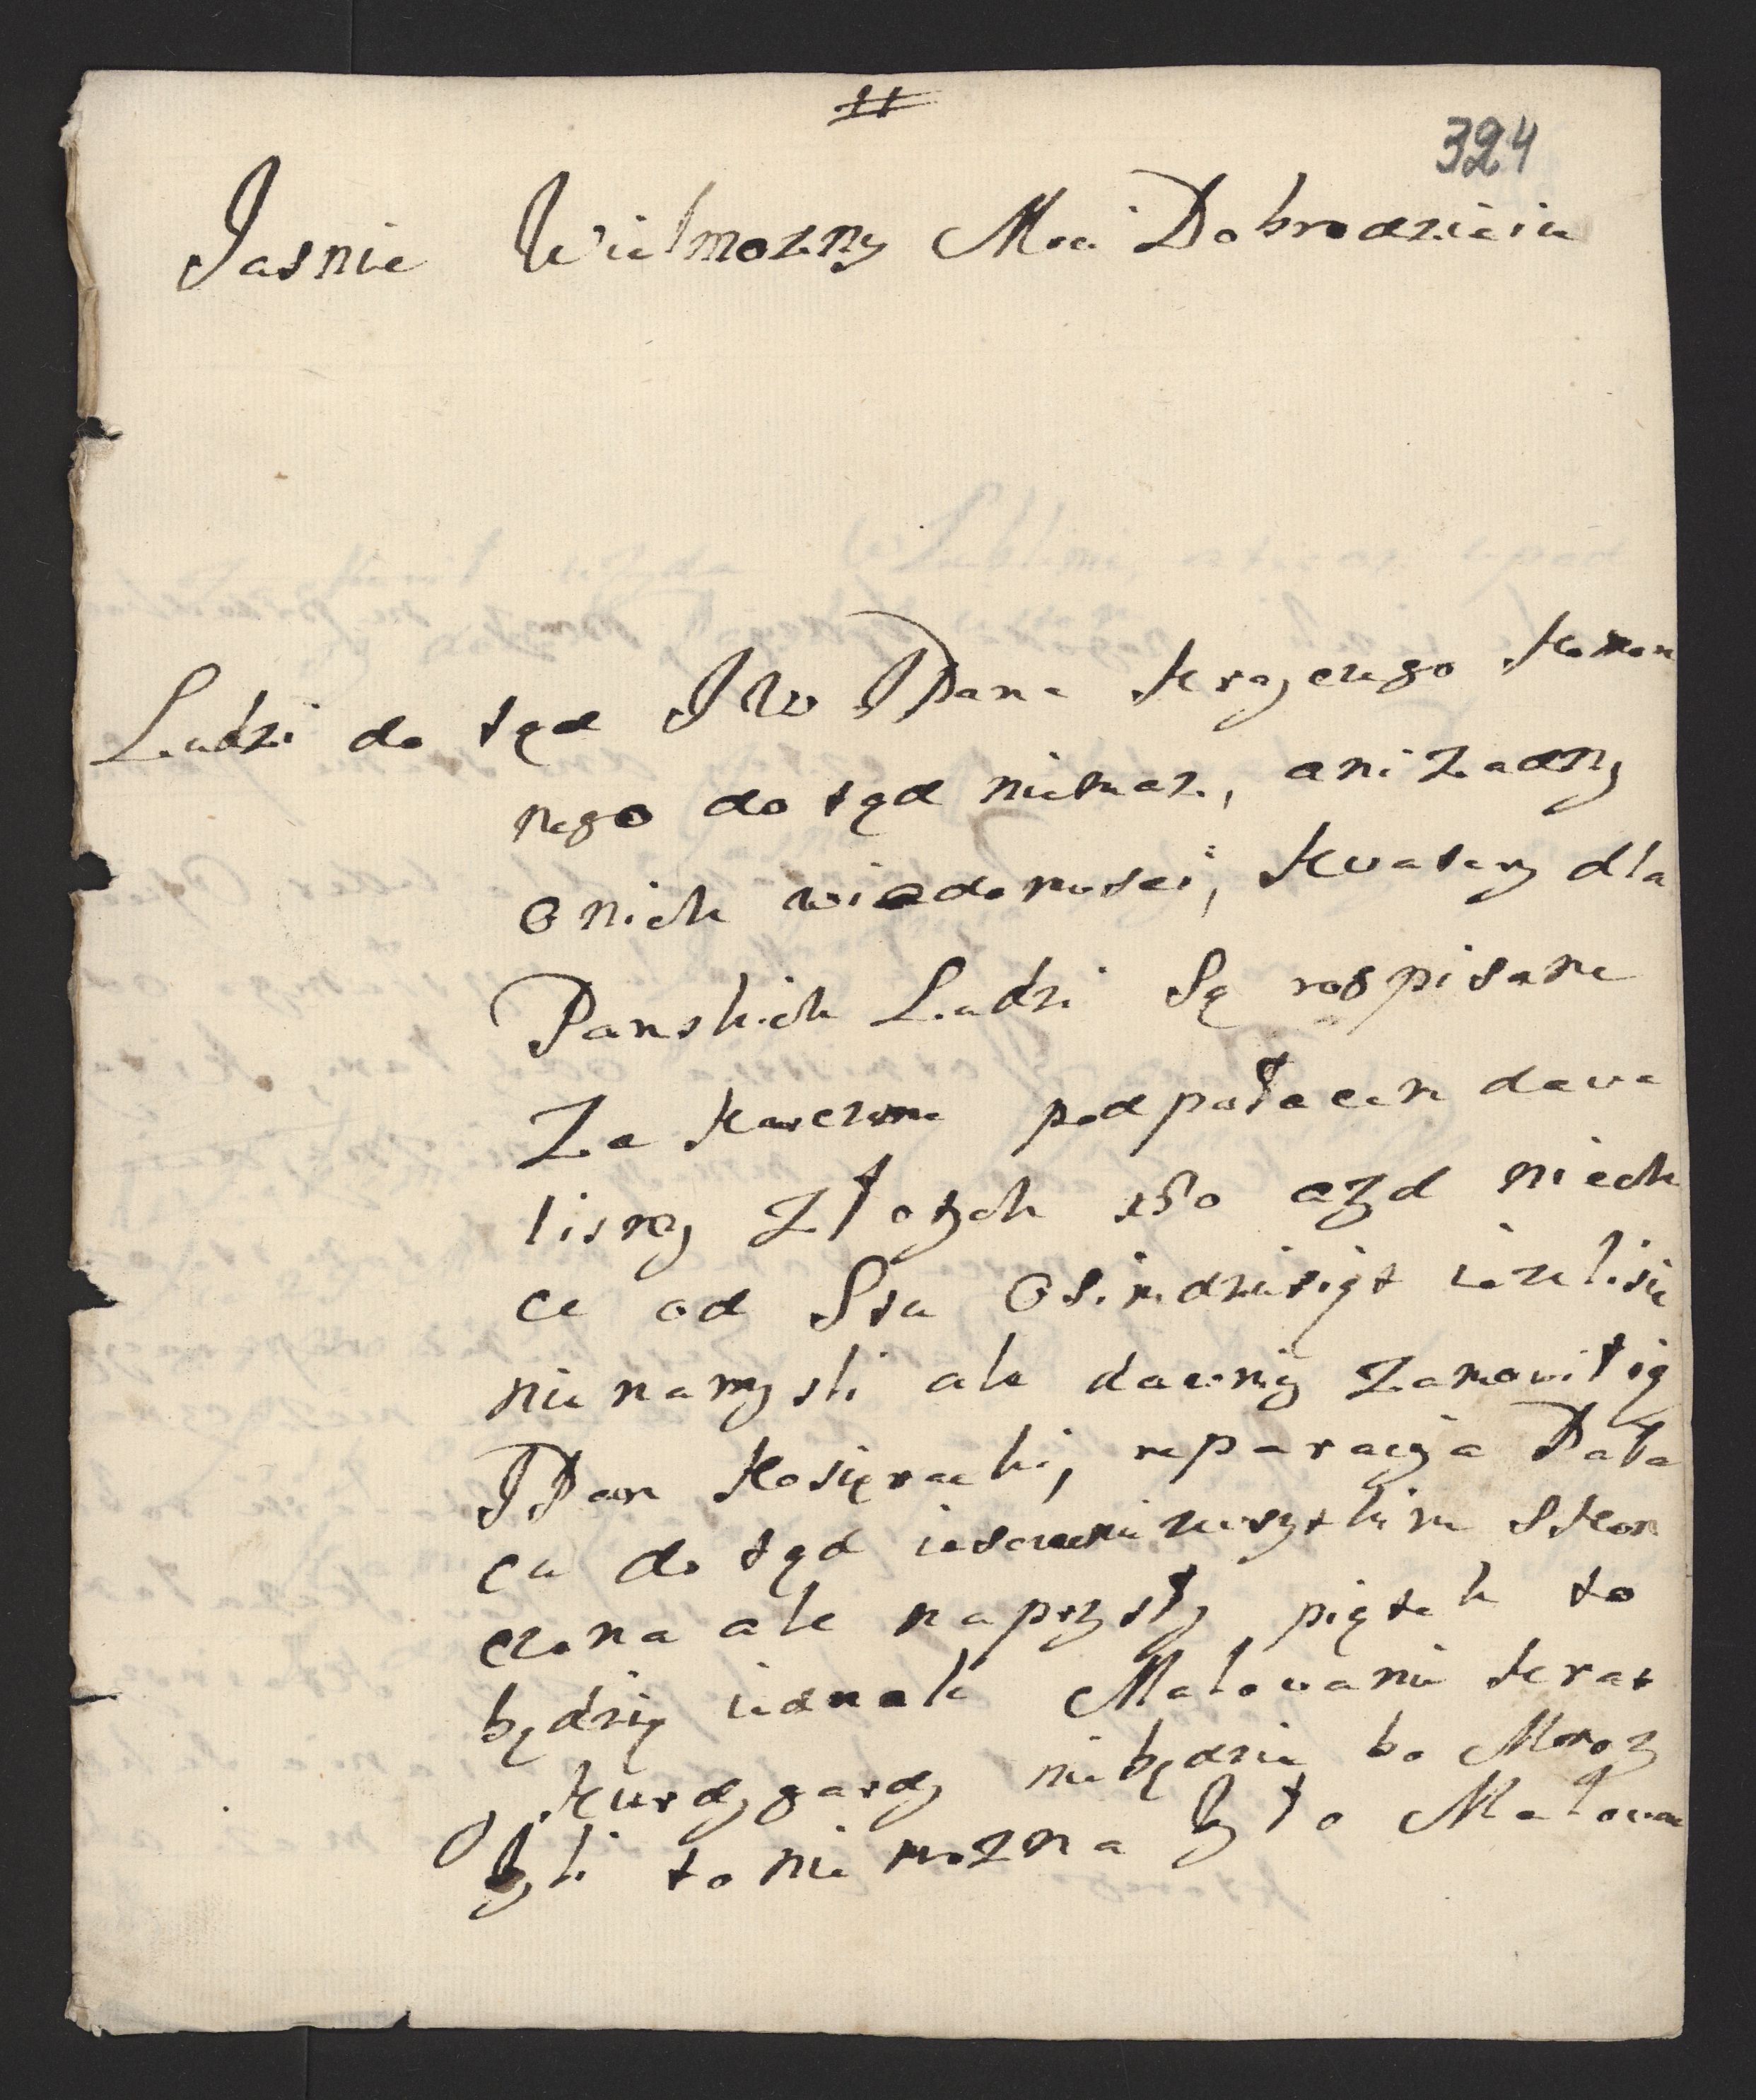 #
324
Jasnie Wielmozny Moi Dobrodzieiu
Ludzi do tąd JW JPana Krayczego Koron
nego do tąd niemasz, ani zadny
o nich wiadomosci, Kwatery dla
Panskich Ludzi Są rospisane
Za Karczme pod pałacem dawa
lismy złotych 150 azyd niech
ce od Sta Osimdziesiąt iezelisie
nie namysli ale dawniy zamowił ią
JPan Kosieracki, reparacyja Pała
cu do tąd ieszcze niezewszytkim Skon
czona ale na przyszły piątek to
będzię iednak Malowanie Krat
y Kurdygardy niebędzie bo Mrozy
byli to nie mozna było Malowac